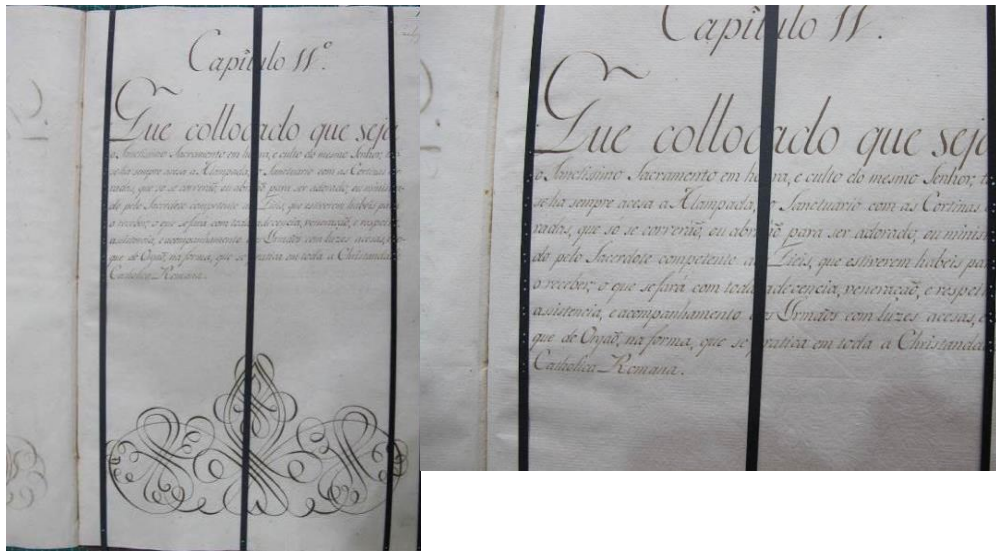 Capitulo 11º.
Que collocado que seja
o Sanctissimo Sacramento em honra, e culto do mesmo Senhor,
se ha sempre acesa a Alampada, o Sanctuario com as Cortinas
radas, que só se correrão, ou abrirão para ser adorado, ou minis
do pelo Sacerdote competente aos Fieis, que estiverem habeis para
o receber; o que se fará com toda a decencia, veneração, e respeit
assistencia, e acompanhamento dos Yrmãos com luzes acesas, e
que de Orgaõ, na forma, que se pratica em toda a Christandad
Catholica Romana.
Capitulo 11.
Que collocado que seja
o Sanctissimo Sacramento em honra, e culto do mesmo Senhor,
se ha sempre acesa a Alampada, o Sanctuario com as Cortinas
radas, que só se correrão, ou abrirão para ser adorado, ou minis
do pelo Sacerdote competente aos Fieis, que estiverem habeis pa
o receber; o que se fará com toda a decencia, veneração, e respei
assistencia, e acompanhamento dos Yrmãos com luzes acesas, e
que de Orgaõ, na forma, que se pratica em toda a Christanda
Catholica Romana.